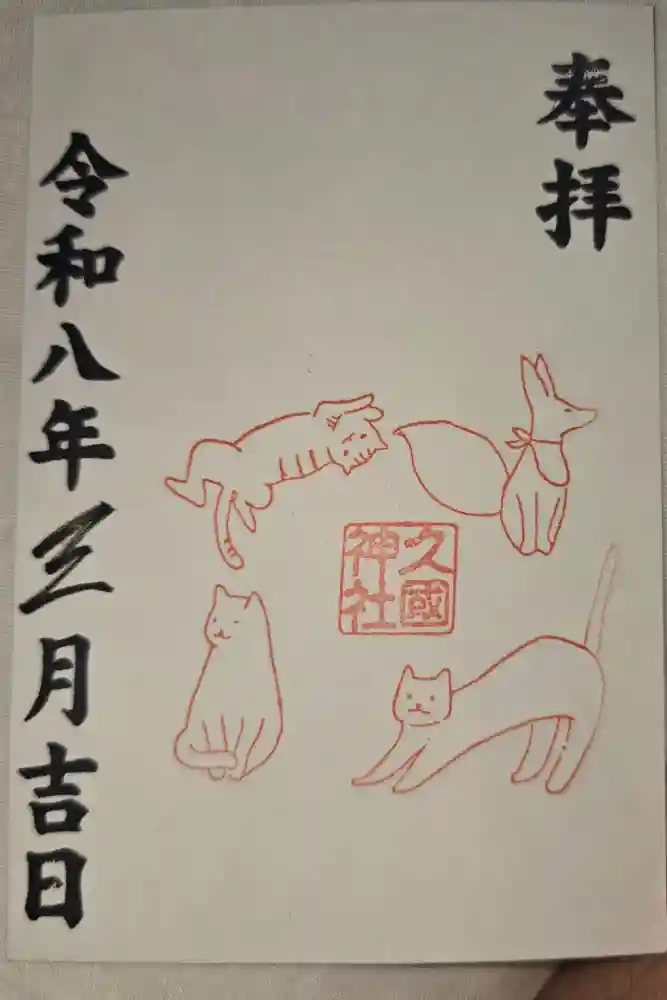 奉拝
久國
神社
令和八年三月吉日